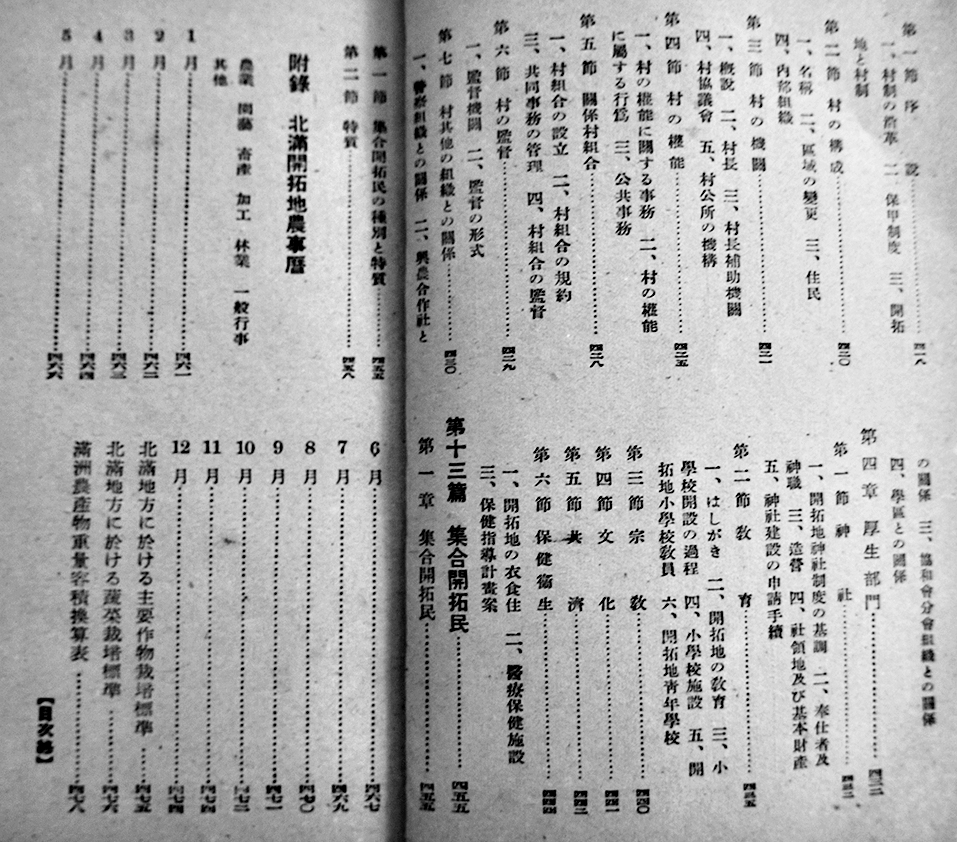 第一節 序 説……四一八
一、村制の沿革 二、保甲制度 三、開拓
地と村制
第二節 村の構成……四二〇
一、名稱 二、區域の變更 三、住民
四、內部組織
第三節 村の機關……四二一
一、槪説 二、村長 三、村長補助機關
四、村協議會 五、村公所の機構
第四節 村の權能……四二五
一、村の權能に關する事務 二、村の權能
に屬する行爲 三、公共事務
第五節 關係村組合……四二八
一、村組合の設立 二、村組合の規約
三、共同事務の管理 四、村組合の監督
第六節 村の監督……四二九
一、監督機關 二、監督の形式
第七節 村其他の組織との關係……四三〇
一、警察組織との關係 二、興農合作社と
の關係 三、協和會分會組織との關係
四、學區との關係
第四章 厚生部門……四三二
第一節 神 社……四三二
一、開拓地神社制度の基調 二、奉仕者及
神職 三、造營 四、社領地及び基本財產
五、神社建設の申請手續
第二節 敎 育……四三五
一、はしがき 二、開拓地の敎育 三、小
學校開設の過程 四、小學校施設 五、開
拓地小學校敎員 六、開拓地靑年學校
第三節 宗 敎……四四〇
第四節 文 化……四四一
第五節 共 濟……四四三
第六節 保健衞生……四四四
一、開拓地の衣食住 二、醫療保健施設
三、保健指導計畫案
第十三篇 集合開拓民……四五五
第一章 集合開拓民……四五五
第一節 集合開拓民の種別と特質……四五五
第二節 特質……四五八
附錄 北滿開拓地農事曆
農業 園藝 畜產 加工 林業 一般行事
其他
1月……四六一
2月……四六二
3月……四六三
4月……四六四
5月……四六六
6月……四六七
7月……四六九
8月……四七〇
9月……四七一
10月……四七二
11月……四七四
12月……四七四
北滿地方に於ける主要作物栽培標準……四七五
北滿地方に於ける蔬菜栽培標準……四七六
滿洲農產物重量容積換算表……四七八
【目次終】